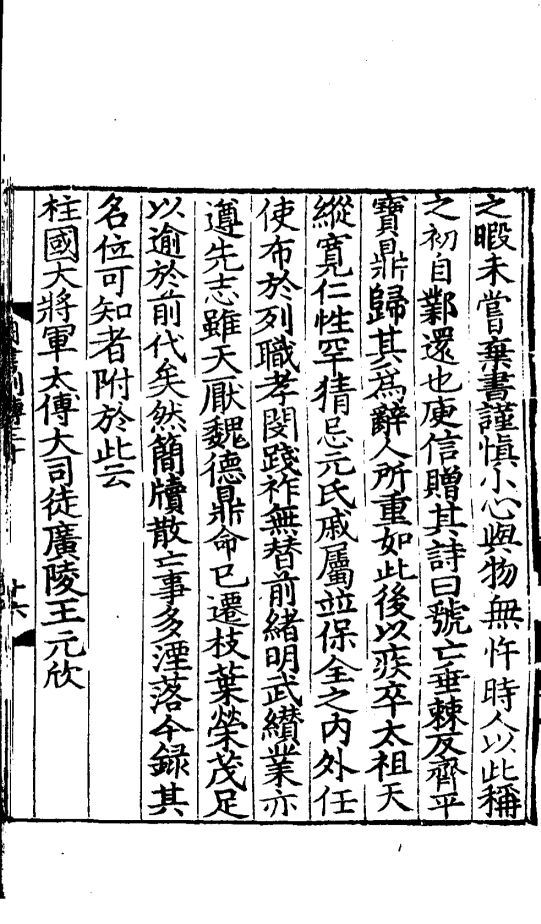 之暇未嘗棄書謹愼小心與物無忤時人以此稱
之初自鄴還也庾信贈其詩曰虢亡垂棘反齊平
寶鼎歸其爲辭人所重如此後以疾卒太祖天
縱寬仁性罕猜忌元氏戚屬並保全之內外任
使布於列職孝閔踐祚無替前緒明武纉業亦
遵先志雖天厭魏德鼎命已遷枝葉榮茂足
以逾於前代矣然簡牘散亡事多湮落今録其
名位可知者附於此云
柱國大將軍太傅大司徒廣陵王元欣
十六